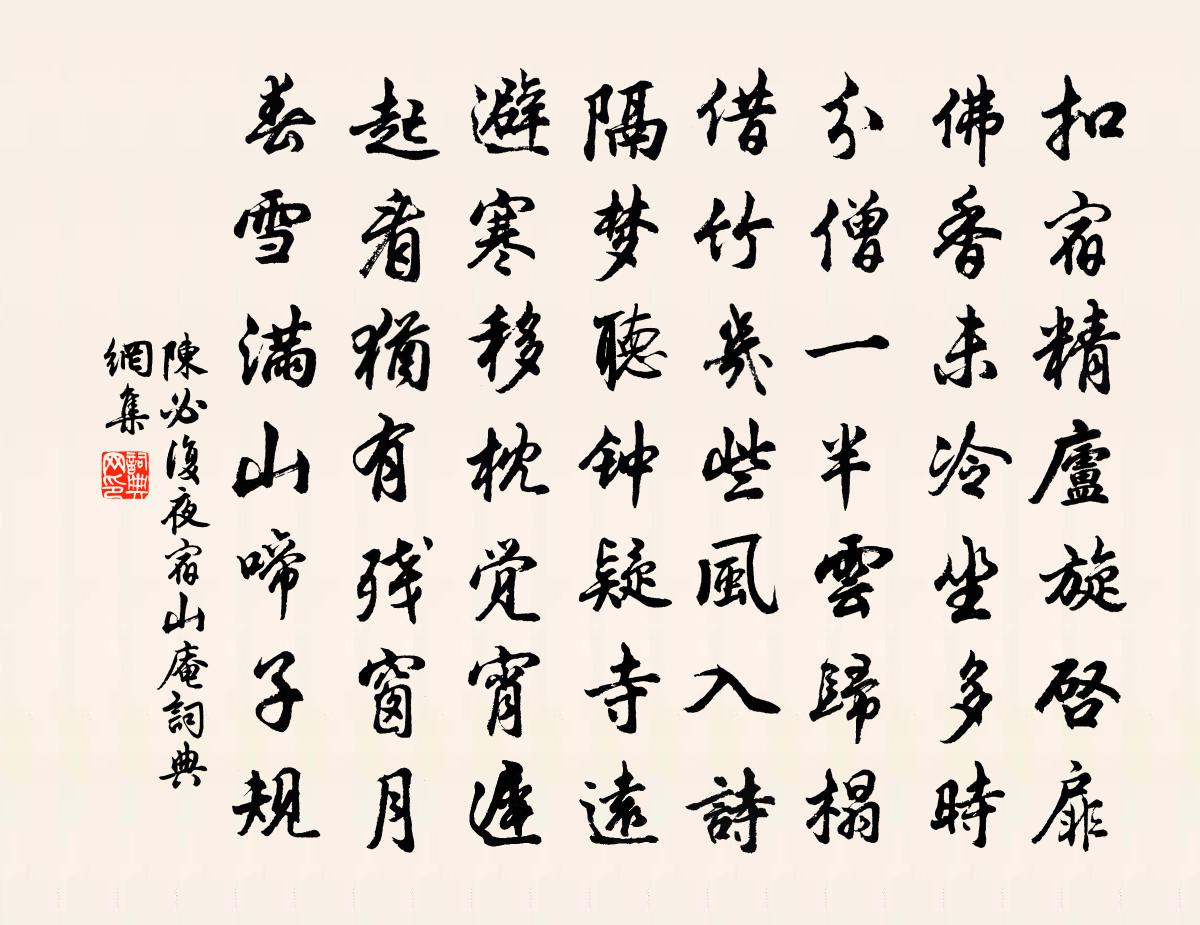 扣宿精廬旋啓扉
佛香未冷坐多時
分僧一半雲歸榻
借竹幾些風入詩
隔梦聽钟疑寺遠
避寒移枕觉宵遲
起看猶有残窗月
春雪滿山啼子規
陳必復夜宿山庵詞典
網集
詞典
网印